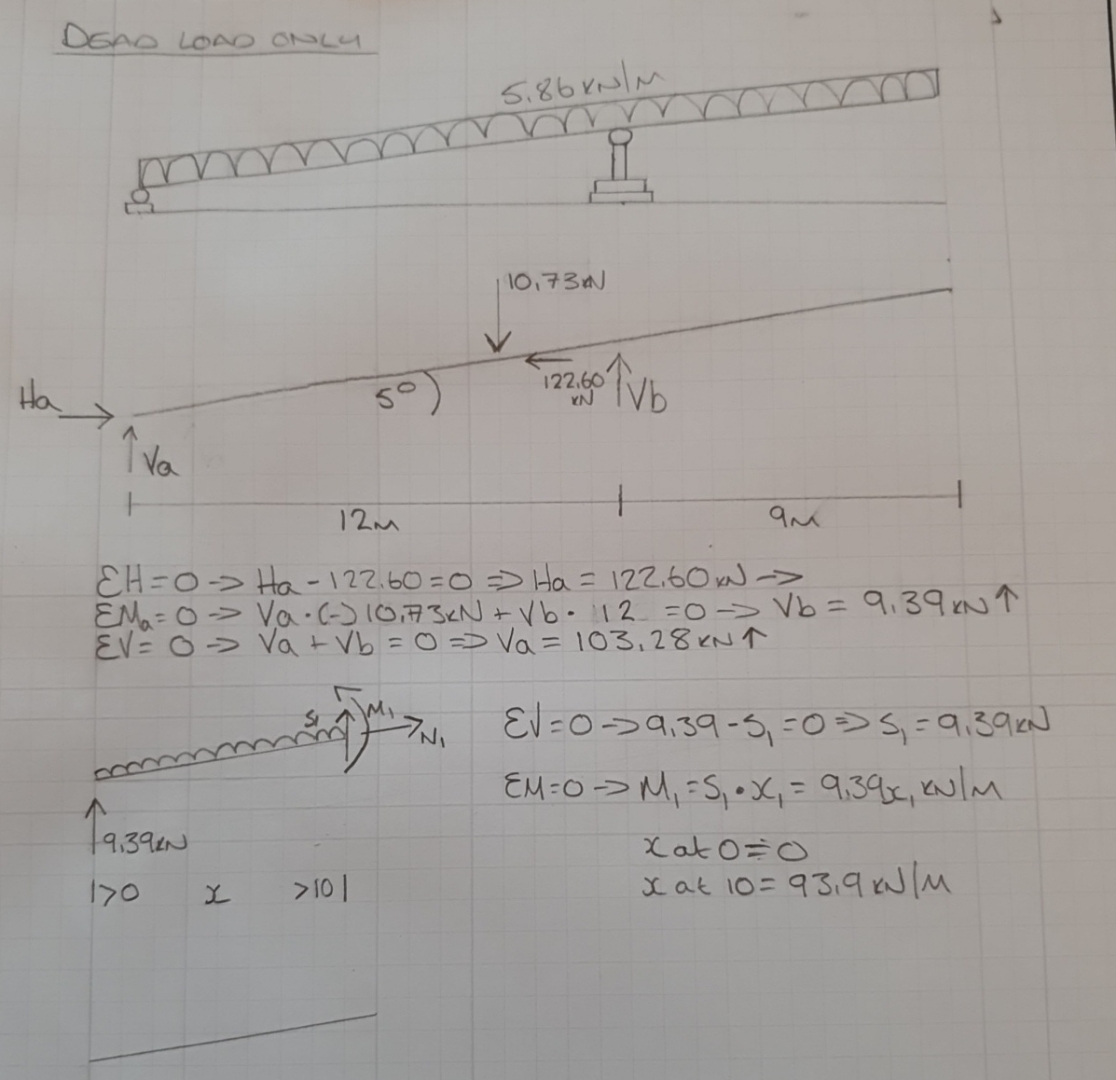 DEAD LOAD ONLY
5.86 kN/M
10.73kN
Ha
5°
122.60 kN
Vb
Va
12M
9M
ΣH=0 -> Ha - 122.60=0 => Ha = 122.60kN ->
ΣMa=0 -> Va·(-)10.73kN + Vb· 12 =0 -> Vb = 9.39kN↑
ΣV= 0 -> Va + Vb = 0 => Va = 103.28kN↑
S1 M1 N1
ΣV=0 -> 9.39 - S1 = 0 => S1 = 9.39kN
ΣM=0 -> M1 = S1·x1 = 9.39x1 kN/M
9.39kN
x at 0 = 0
|>0 x >10|
x at 10 = 93.9 kN/M